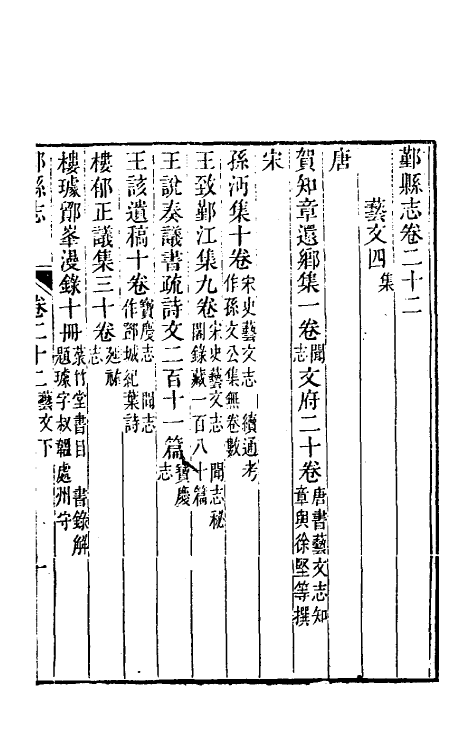 鄞縣志卷二十二
藝文四集
唐
賀知章還鄉集一卷聞志文府二十卷唐書藝文志知章與徐堅等撰
宋
孫沔集十卷宋史藝文志 續通考作孫文公集無卷數
王致鄞江集九卷宋史藝文志 聞志祕閣錄藏一百八十篇
王說奏議書疏詩文二百十一篇寶慶志
王該遺稿十卷寶慶志 聞志作鄧城紀葉詩
樓郁正議集三十卷延祐志
樓璩鄮峯漫錄十冊菉竹堂書目 書錄解題璩字叔韞處州守
鄞縣志 卷二十二 藝文下 一